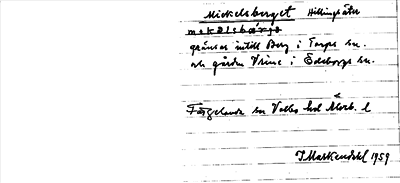 Mickelsberget Hillingsäter
mekelsbärje
gränsar intill Berg i Torps sn.
och gården Vrine i Ödeborgs sn.
Färgelanda sn Valbo hd Älvsb. l
J Markendahl 1959